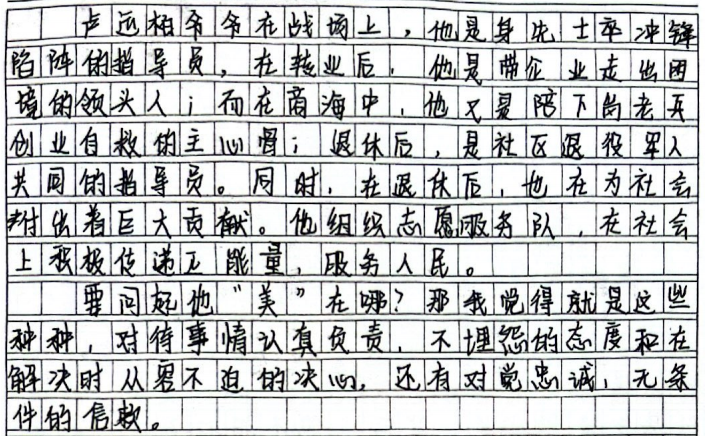 卢远柏爷爷在战场上，他是身先士卒冲锋
陷阵的指导员，在转业后，他是带企业走出困
境的领头人；而在商海中，他又是陪下岗老兵
创业自救的主心骨；退休后，是社区退役军人
共同的指导员。同时，在退休后，也在为社会
付出着巨大贡献。他组织志愿服务队，在社会
上积极传递正能量，服务人民。
要问起他“美”在哪？那我觉得就是这些
种种，对待事情认真负责，不埋怨的态度和在
解决时从容不迫的决心，还有对党忠诚，无条
件的信